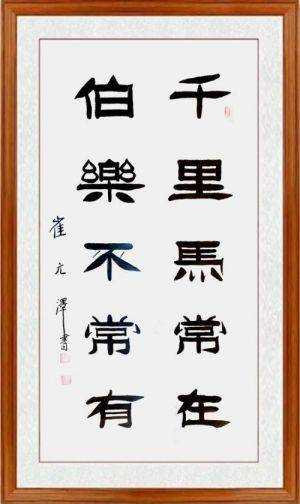 千里馬常在
伯樂不常有
澤書